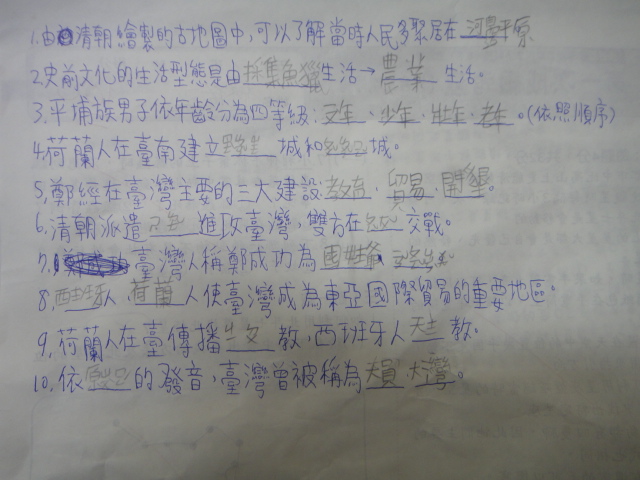 1.由清朝繪製的古地圖中,可以了解當時人民多聚居在河口平原
2.史前文化的生活型態是由採集漁獵生活→農業生活。
3.平埔族男子依年齡分為四等級:少年、壯年、老年。(依照順序)
4.荷蘭人在臺南建立城和城。
5.鄭經在臺灣主要的三大建設:教育、貿易、開墾。
6.清朝派遣進攻臺灣,雙方在交戰。
7.臺灣人稱鄭成功為國姓爺
8.西班牙人、荷蘭人使臺灣成為東亞國際貿易的重要地區。
9.荷蘭人在臺傳播教,西班牙人天主教。
10.依的發音,臺灣曾被稱為大員、大灣。